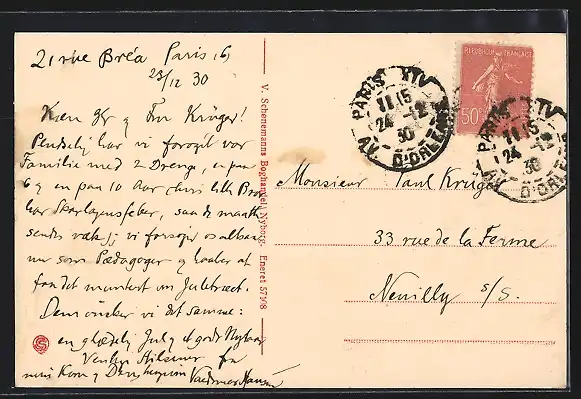 21 rue Bréa Paris 6
23/12 30
Kære Hr & Fru Krüger!
Pludselig har vi forøget vor
Familie med 2 Drenge, en paa
6 og en paa 10 Aar hvis lille Bror
har Skarlagensfeber, saa de maatte
sendes væk; vi forsøger os altsaa
nu som Pædagoger & haaber at
faa det muntert om Juletræet.
Dem ønsker vi det samme:
en glædelig Jul & et godt Nytaar
Venlig Hilsener fra
min Kone & Deres hengivne Valdemar Hansen
V. Schønemanns Boghandel, Nyborg. Eneret 57198
REPUBLIQUE FRANÇAISE
50
PARIS XIV
11 15
24 -12
30
AV. D'ORLEANS
PARIS XIV
11 15
24 -12
30
AV. D'ORLEANS
Monsieur Paul Krüger
33 rue de la Ferme
Neuilly s/S.